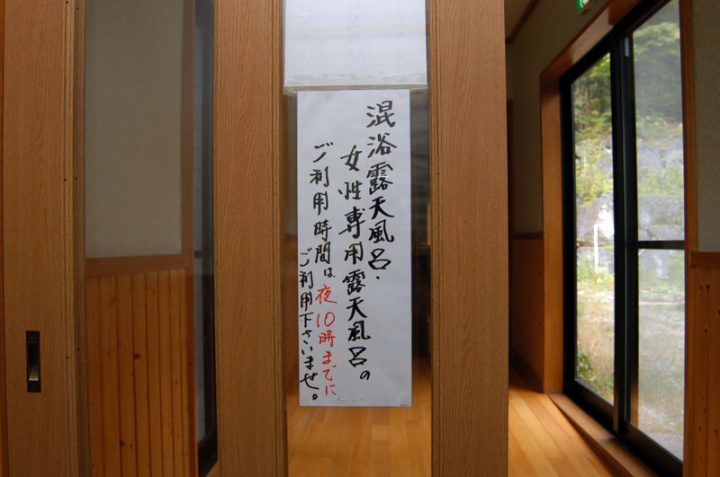 混浴露天風呂・
女性専用露天風呂の
ご利用時間は夜10時までに
ご利用下さいませ。